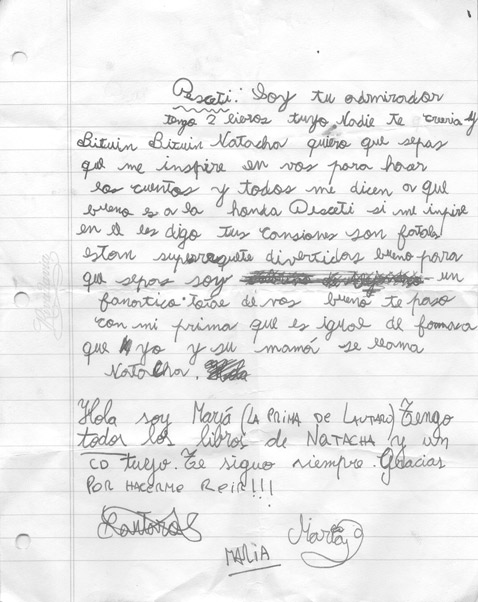 Pesceti: Soy tu admirador
tengo 2 libros tuyo Nadie te creria y
Bituin Bituin Natacha quiero que sepas
que me inspire en vos para hacer
los cuentos y todos me dicen a que
bueno es a la honda Pesceti si me inpire
en el les digo tus cansiones son fatals
estan superrequete divertidas bueno para
que sepas soy un
fanartico total de vos bueno te paso
con mi prima que es igual de fanara
que yo y su mamá se llama
Natacha.
Hola soy María (LA PRIMA DE LAUTARO) Tengo
todos los libros de NATACHA y un
CD tuyo. Te siguo siempre. Gracias
POR HACERME REIR!!!
MARIA